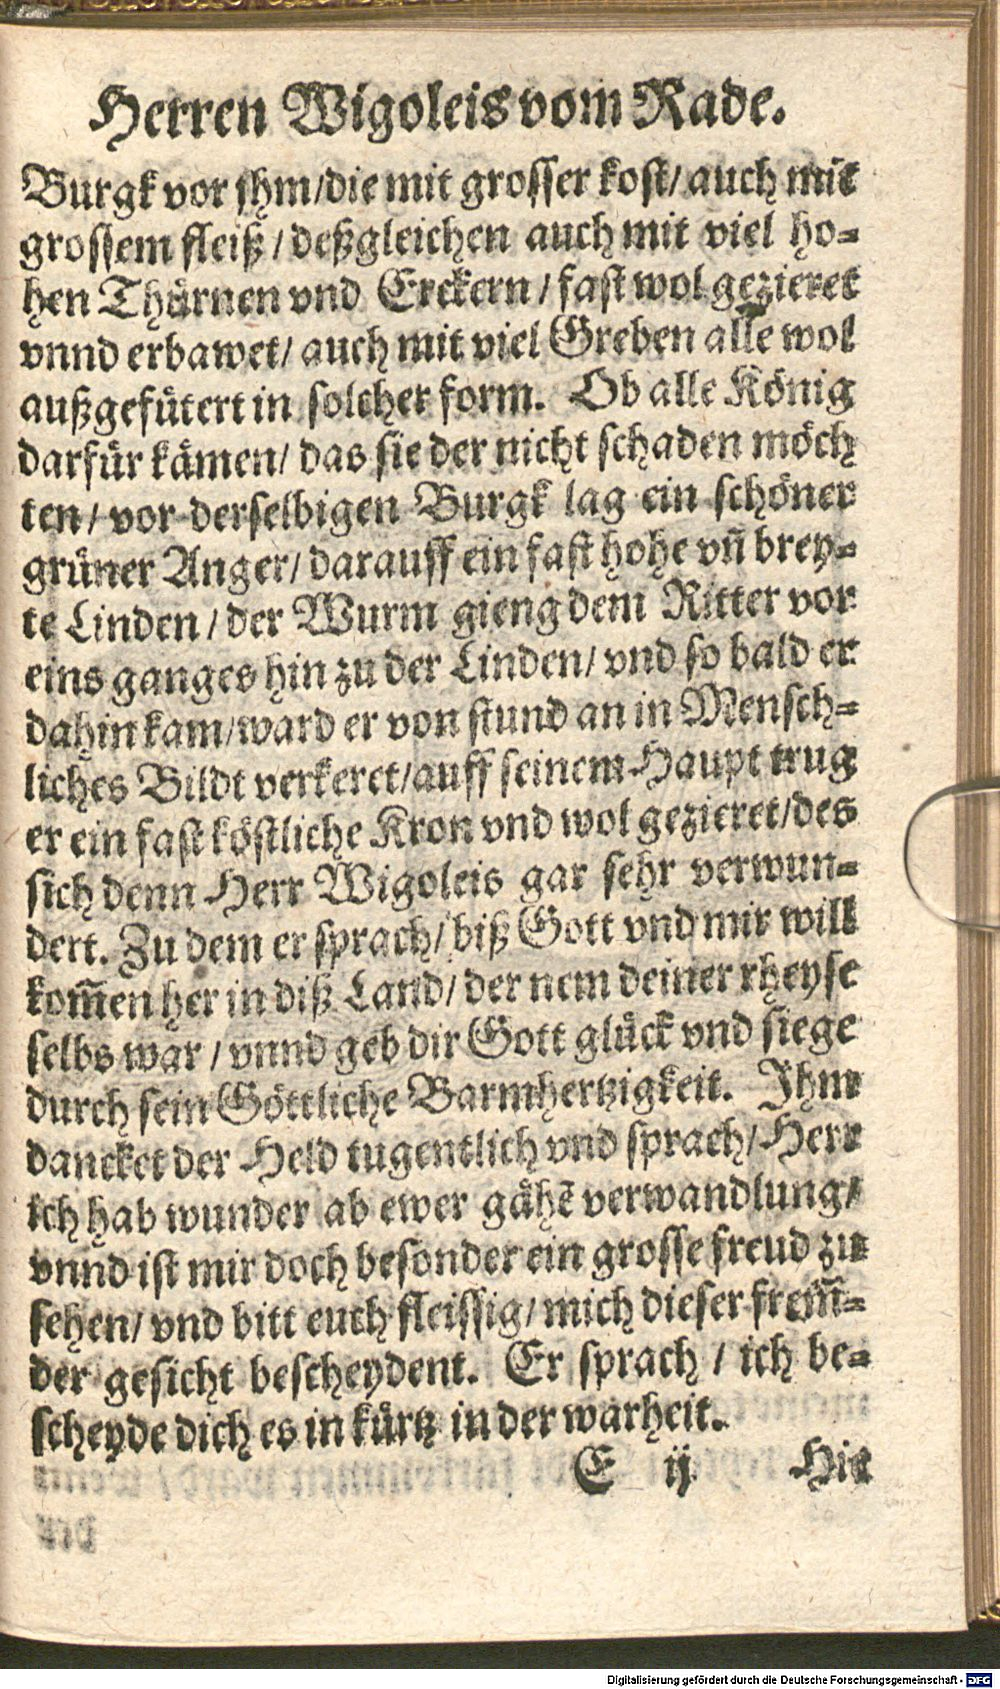 Herren Wigoleis vom Rade.
Burgk vor jhm/die mit grosser kost/ auch mit
grossem fleiß / deßgleichen auch mit viel ho=
hen Thürnen vnd Erckern / fast wol gezieret
vnnd erbawet/ auch mit viel Greben alle wol
außgefütert in solcher form. Ob alle König
darfür kämen/ das sie der nicht schaden möch
ten/ vor derselbigen Burgk lag ein schöner
grüner Anger/ darauff ein fast hohe vñ brey=
te Linden / der Wurm gieng dem Ritter vor
eins ganges hin zu der Linden/ vnd so bald er
dahin kam/ward er von stund an in Mensch=
liches Bildt verkeret/auff seinem Haupt trug
er ein fast köstliche Kron vnd wol gezieret/des
sich denn Herr Wigoleis gar sehr verwun=
dert. Zu dem er sprach/ biß Gott vnd mir will
kom̃en her in diß Land/ der nem deiner rheyse
selbs war / vnnd geb dir Gott glück vnd siege
durch sein Göttliche Barmhertzigkeit. Ihm
dancket der Held tugentlich vnd sprach/ Herr
ich hab wunder ab ewer gähẽ verwandlung/
vnnd ist mir doch besonder ein grosse freud zu
sehen/ vnd bitt euch fleissig/ mich dieser frem̃=
der gesicht bescheydent. Er sprach / ich be=
scheyde dich es in kürtz in der warheit.
E ij Hie
Digitalisierung gefördert durch die Deutsche Forschungsgemeinschaft - DFG